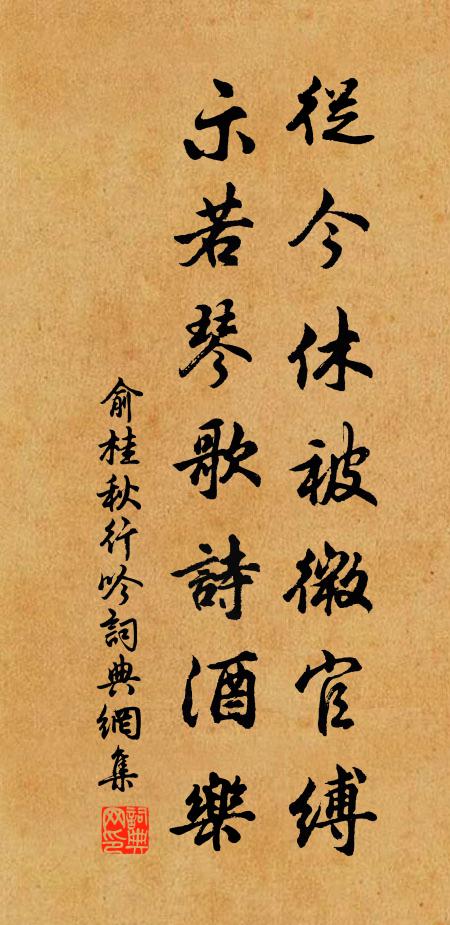 從今休被微官縛
示若琴歌詩酒樂
俞桂秋行吟詞典網集
詞典網印